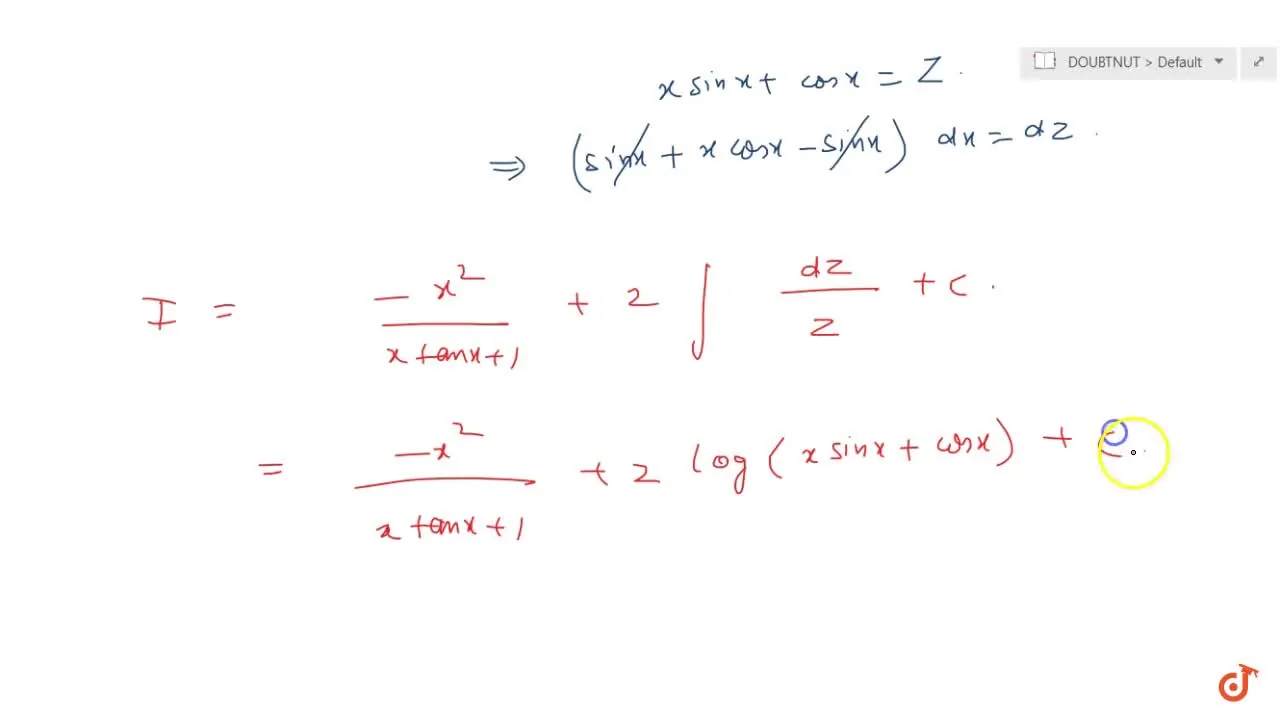 DOUBTNUT > Default
x sinx + cosx = Z.
⇒ (sinx + x cosx - sinx) dx = dz.
I = -x² / (x tanx + 1) + 2 ∫ dz / z + c.
= -x² / (x tanx + 1) + 2 log (x sinx + cosx) + c.